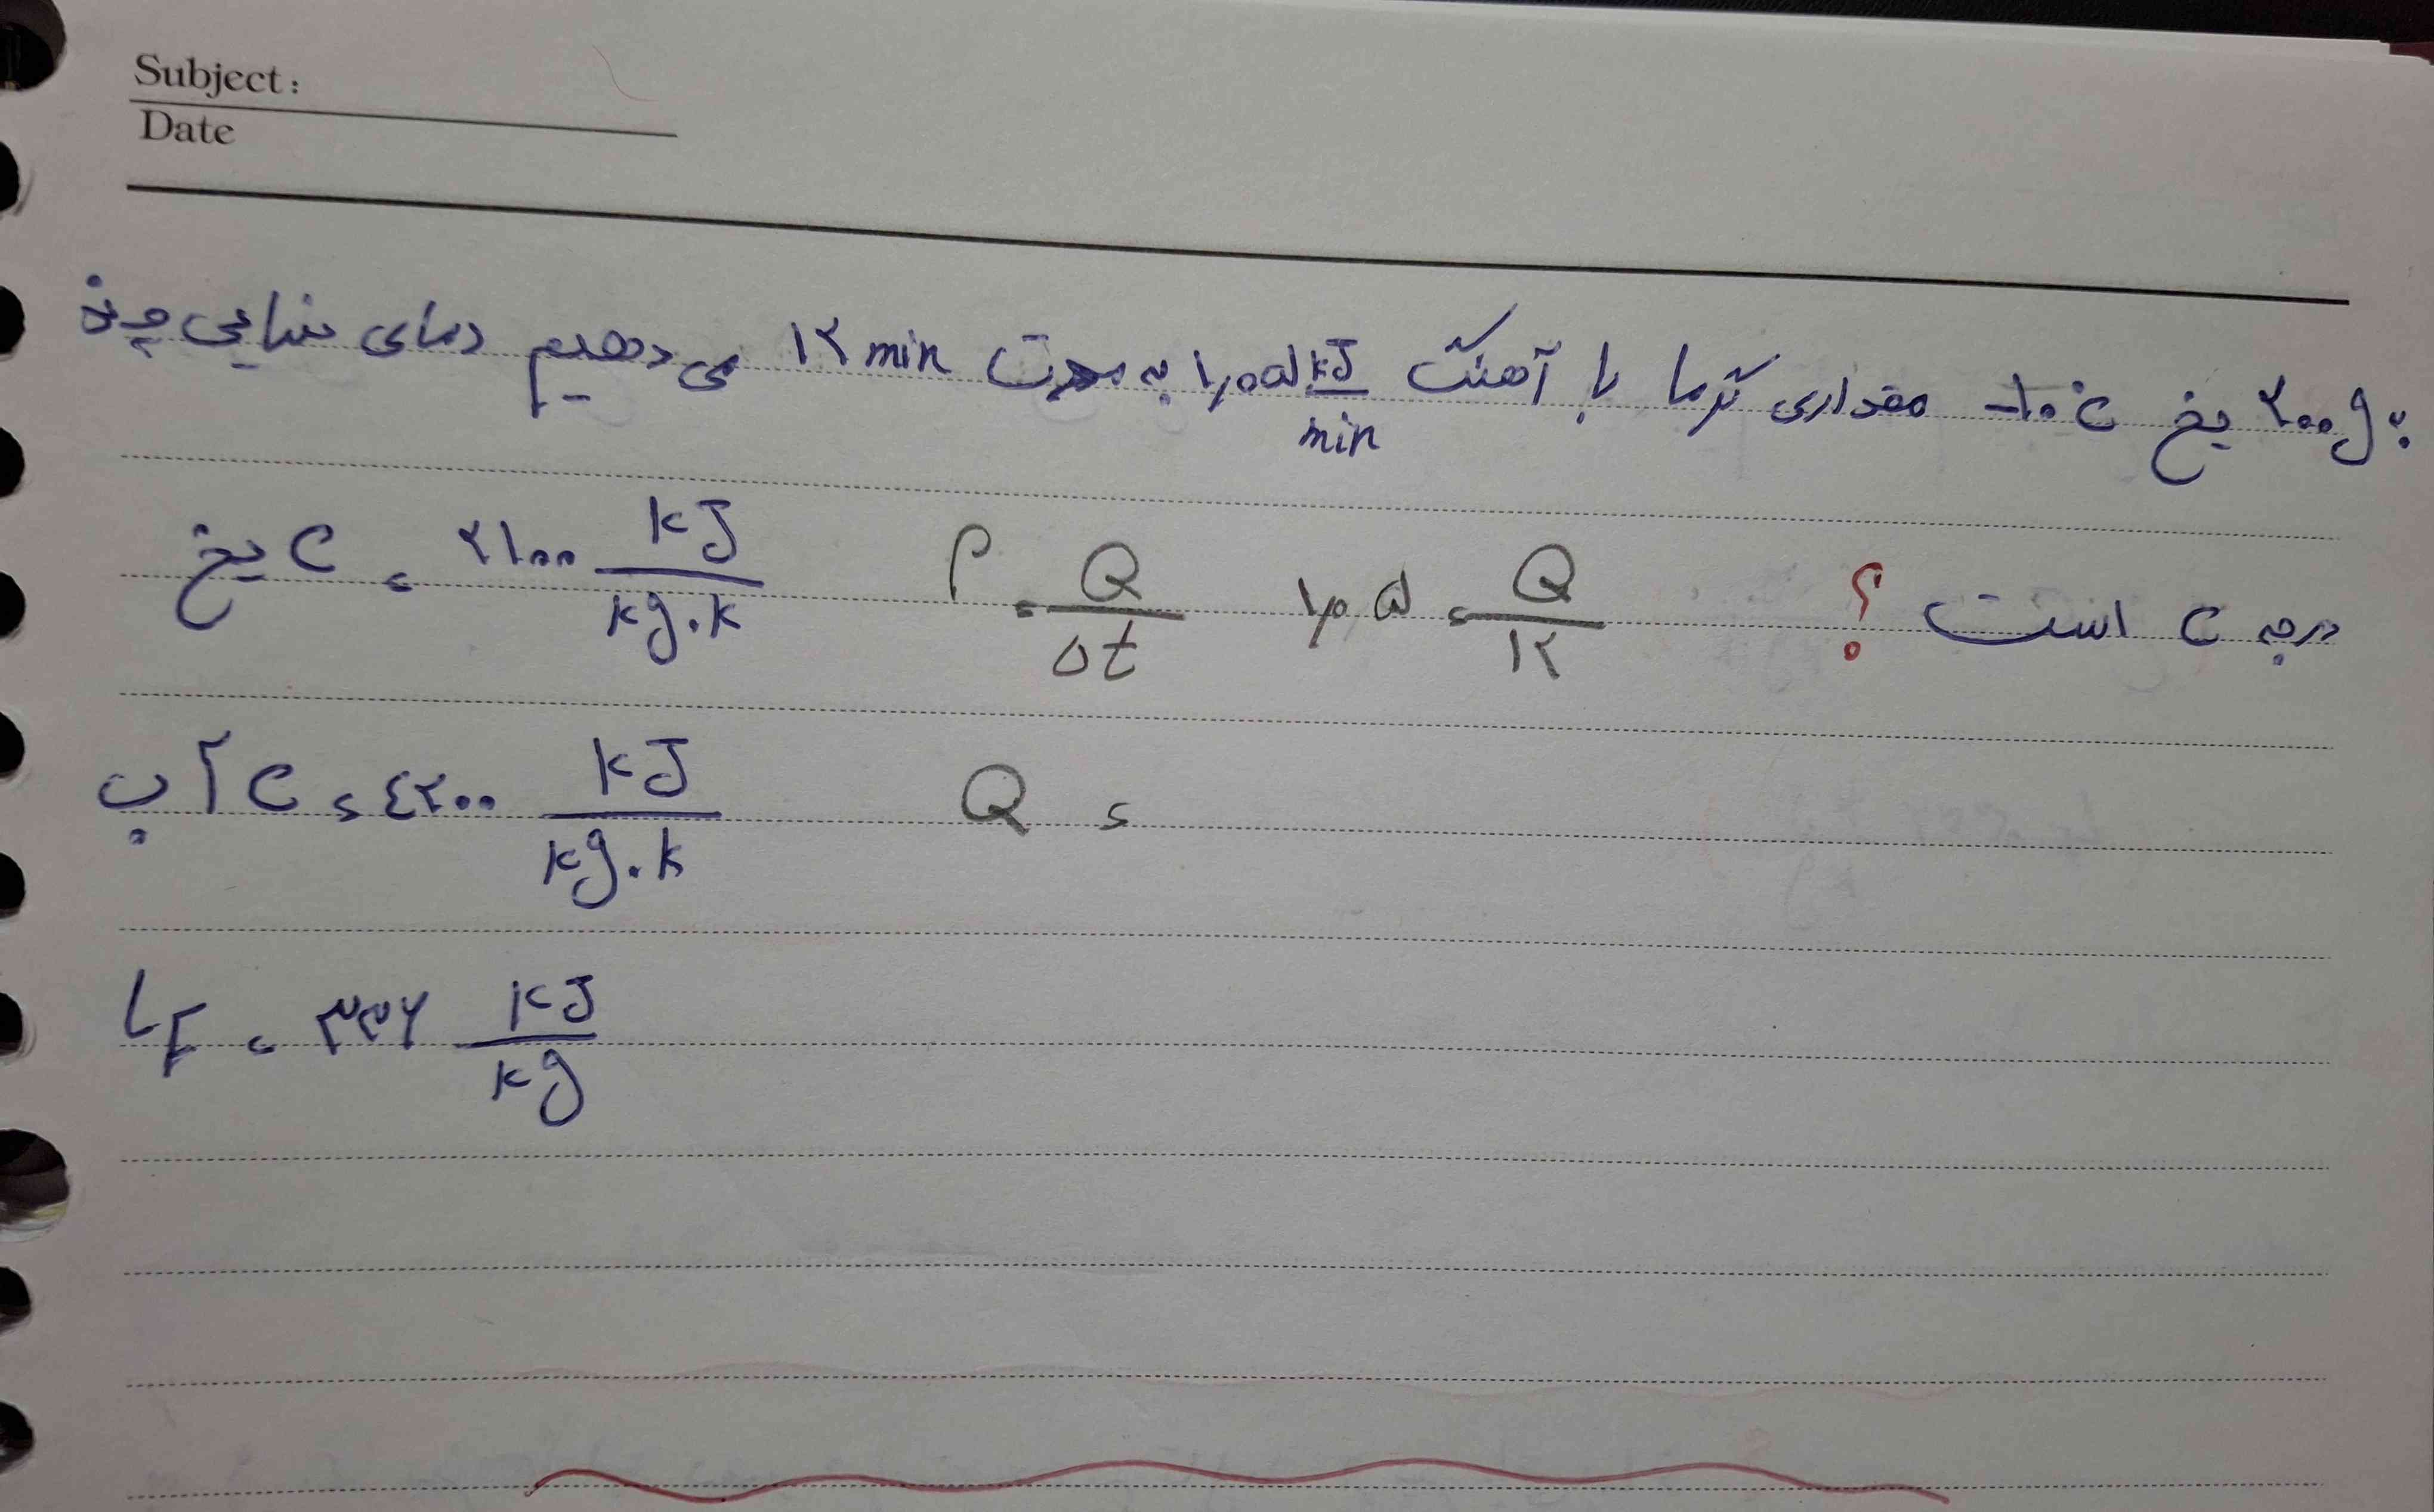 Subject:
Date
به ۲۰۰g یخ -۱۰°C مقداری گرما با آهنگ ۱٫۰۵ kJ/min به مدت ۱۲ min می دهیم دمای نهایی چند
درجه C است ؟
P = Q/Δt ۱٫۰۵ = Q/۱۲
C یخ = ۲۱۰۰ kJ/kg.k
Q =
C آب = ٤۲۰۰ kJ/kg.k
LF = ۳۳۶ kJ/kg